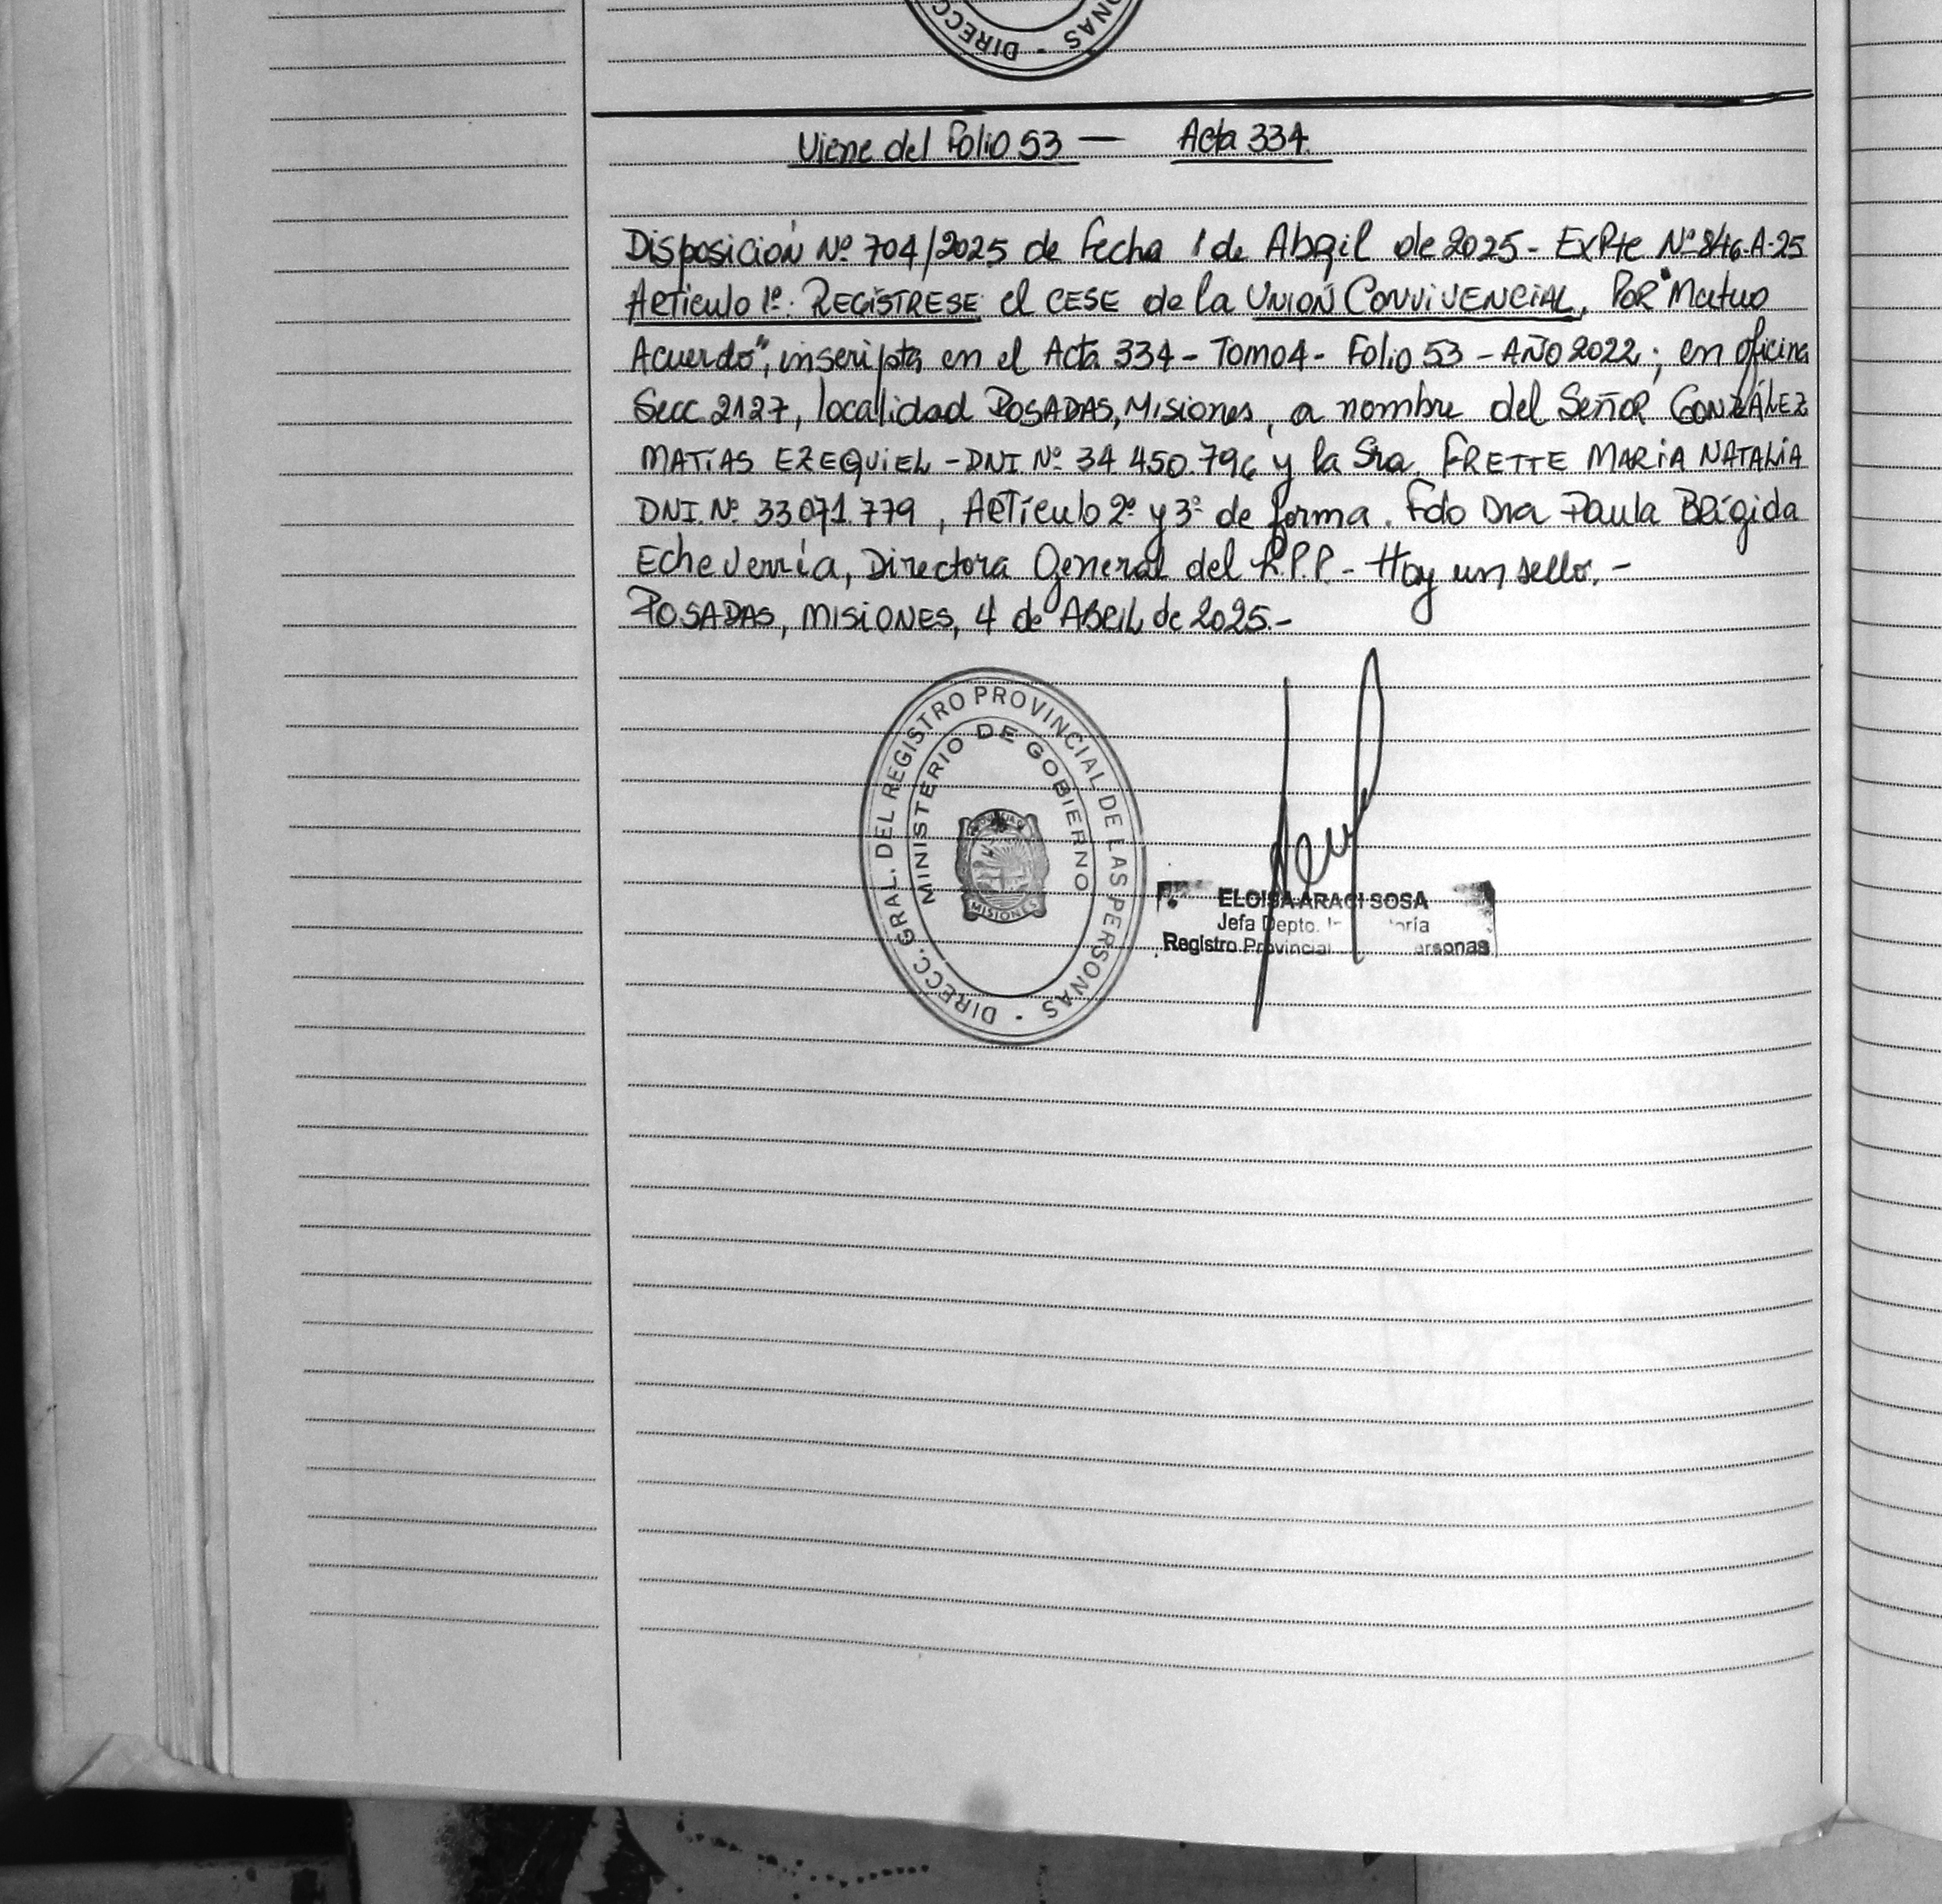 DIRECC
ONAS -
Viene del Folio 53 — Acta 334
Disposición Nº 704/2025 de Fecha 1 de Abril de 2025 - Expte Nº 846-A-25
Artículo 1º: REGÍSTRESE el CESE de la UNIÓN CONVIVENCIAL, POR "Mutuo
Acuerdo", inscripta en el Acta 334 - Tomo 4 - Folio 53 - AÑO 2022; en oficina
Secc 2127, localidad POSADAS, Misiones, a nombre del SEÑOR GONZÁLEZ
MATÍAS EZEQUIEL - DNI Nº 34.450.796 y la Sra. FRETTE MARÍA NATALIA
DNI. Nº 33.071.779, Artículo 2º y 3º de forma. Fdo Dra Paula Brígida
Echeverría, Directora General del R.P.P. - Hay un sello. -
POSADAS, MISIONES, 4 de ABRIL de 2025.-
DIRECC. GRAL. DEL REGISTRO PROVINCIAL DE LAS PERSONAS -
MINISTERIO DE GOBIERNO
MISIONES
ELOISA ARACI SOSA
Jefa Depto.
Registro Provincial